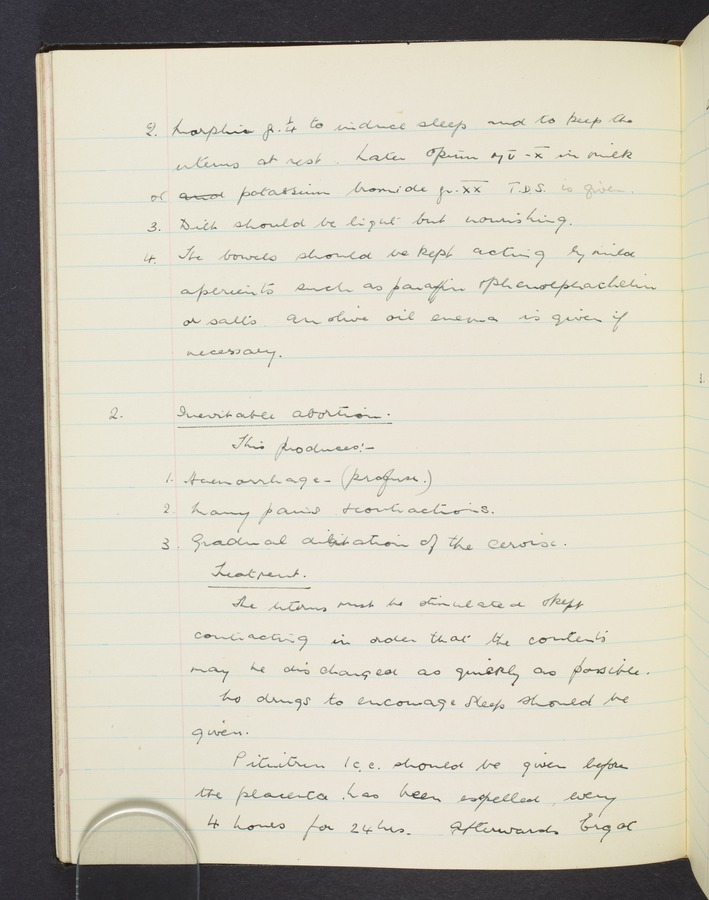 2. Morphia gr. ¼ to induce sleep and to keep the
uterus at rest. Later Opium ♏ v̄ - x̄ in milk
or and potassium bromide gr. x̄x̄ T.D.S. is given.
3. Diet should be light but nourishing.
4. The bowels should be kept acting by mild
aperients such as paraffin &phenolphthalein
or salts. An olive oil enema is given if
necessary.
2. Inevitable abortion.
This produces:-
1. Haemorrhage - (profuse.)
2. Many pains &contractions.
3. Gradual dilitation of the cervix.
Treatment.
The uterus must be stimulated &kept
contracting in order that the contents
may be discharged as quickly as possible.
No drugs to encourage sleep should be
given.
Pituitrin 1c.c. should be given before
the placenta has been expelled, every
4 hours for 24hrs. Afterwards Ergot
1.